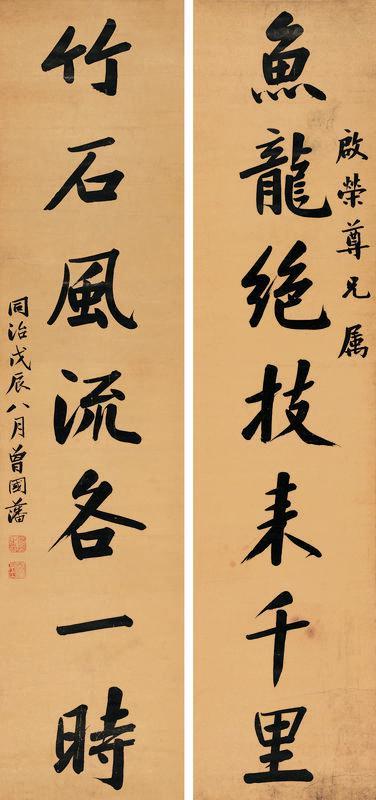 啟榮尊兄属
魚龍絕技来千里
竹石風流各一時
同治戊辰八月曾國藩